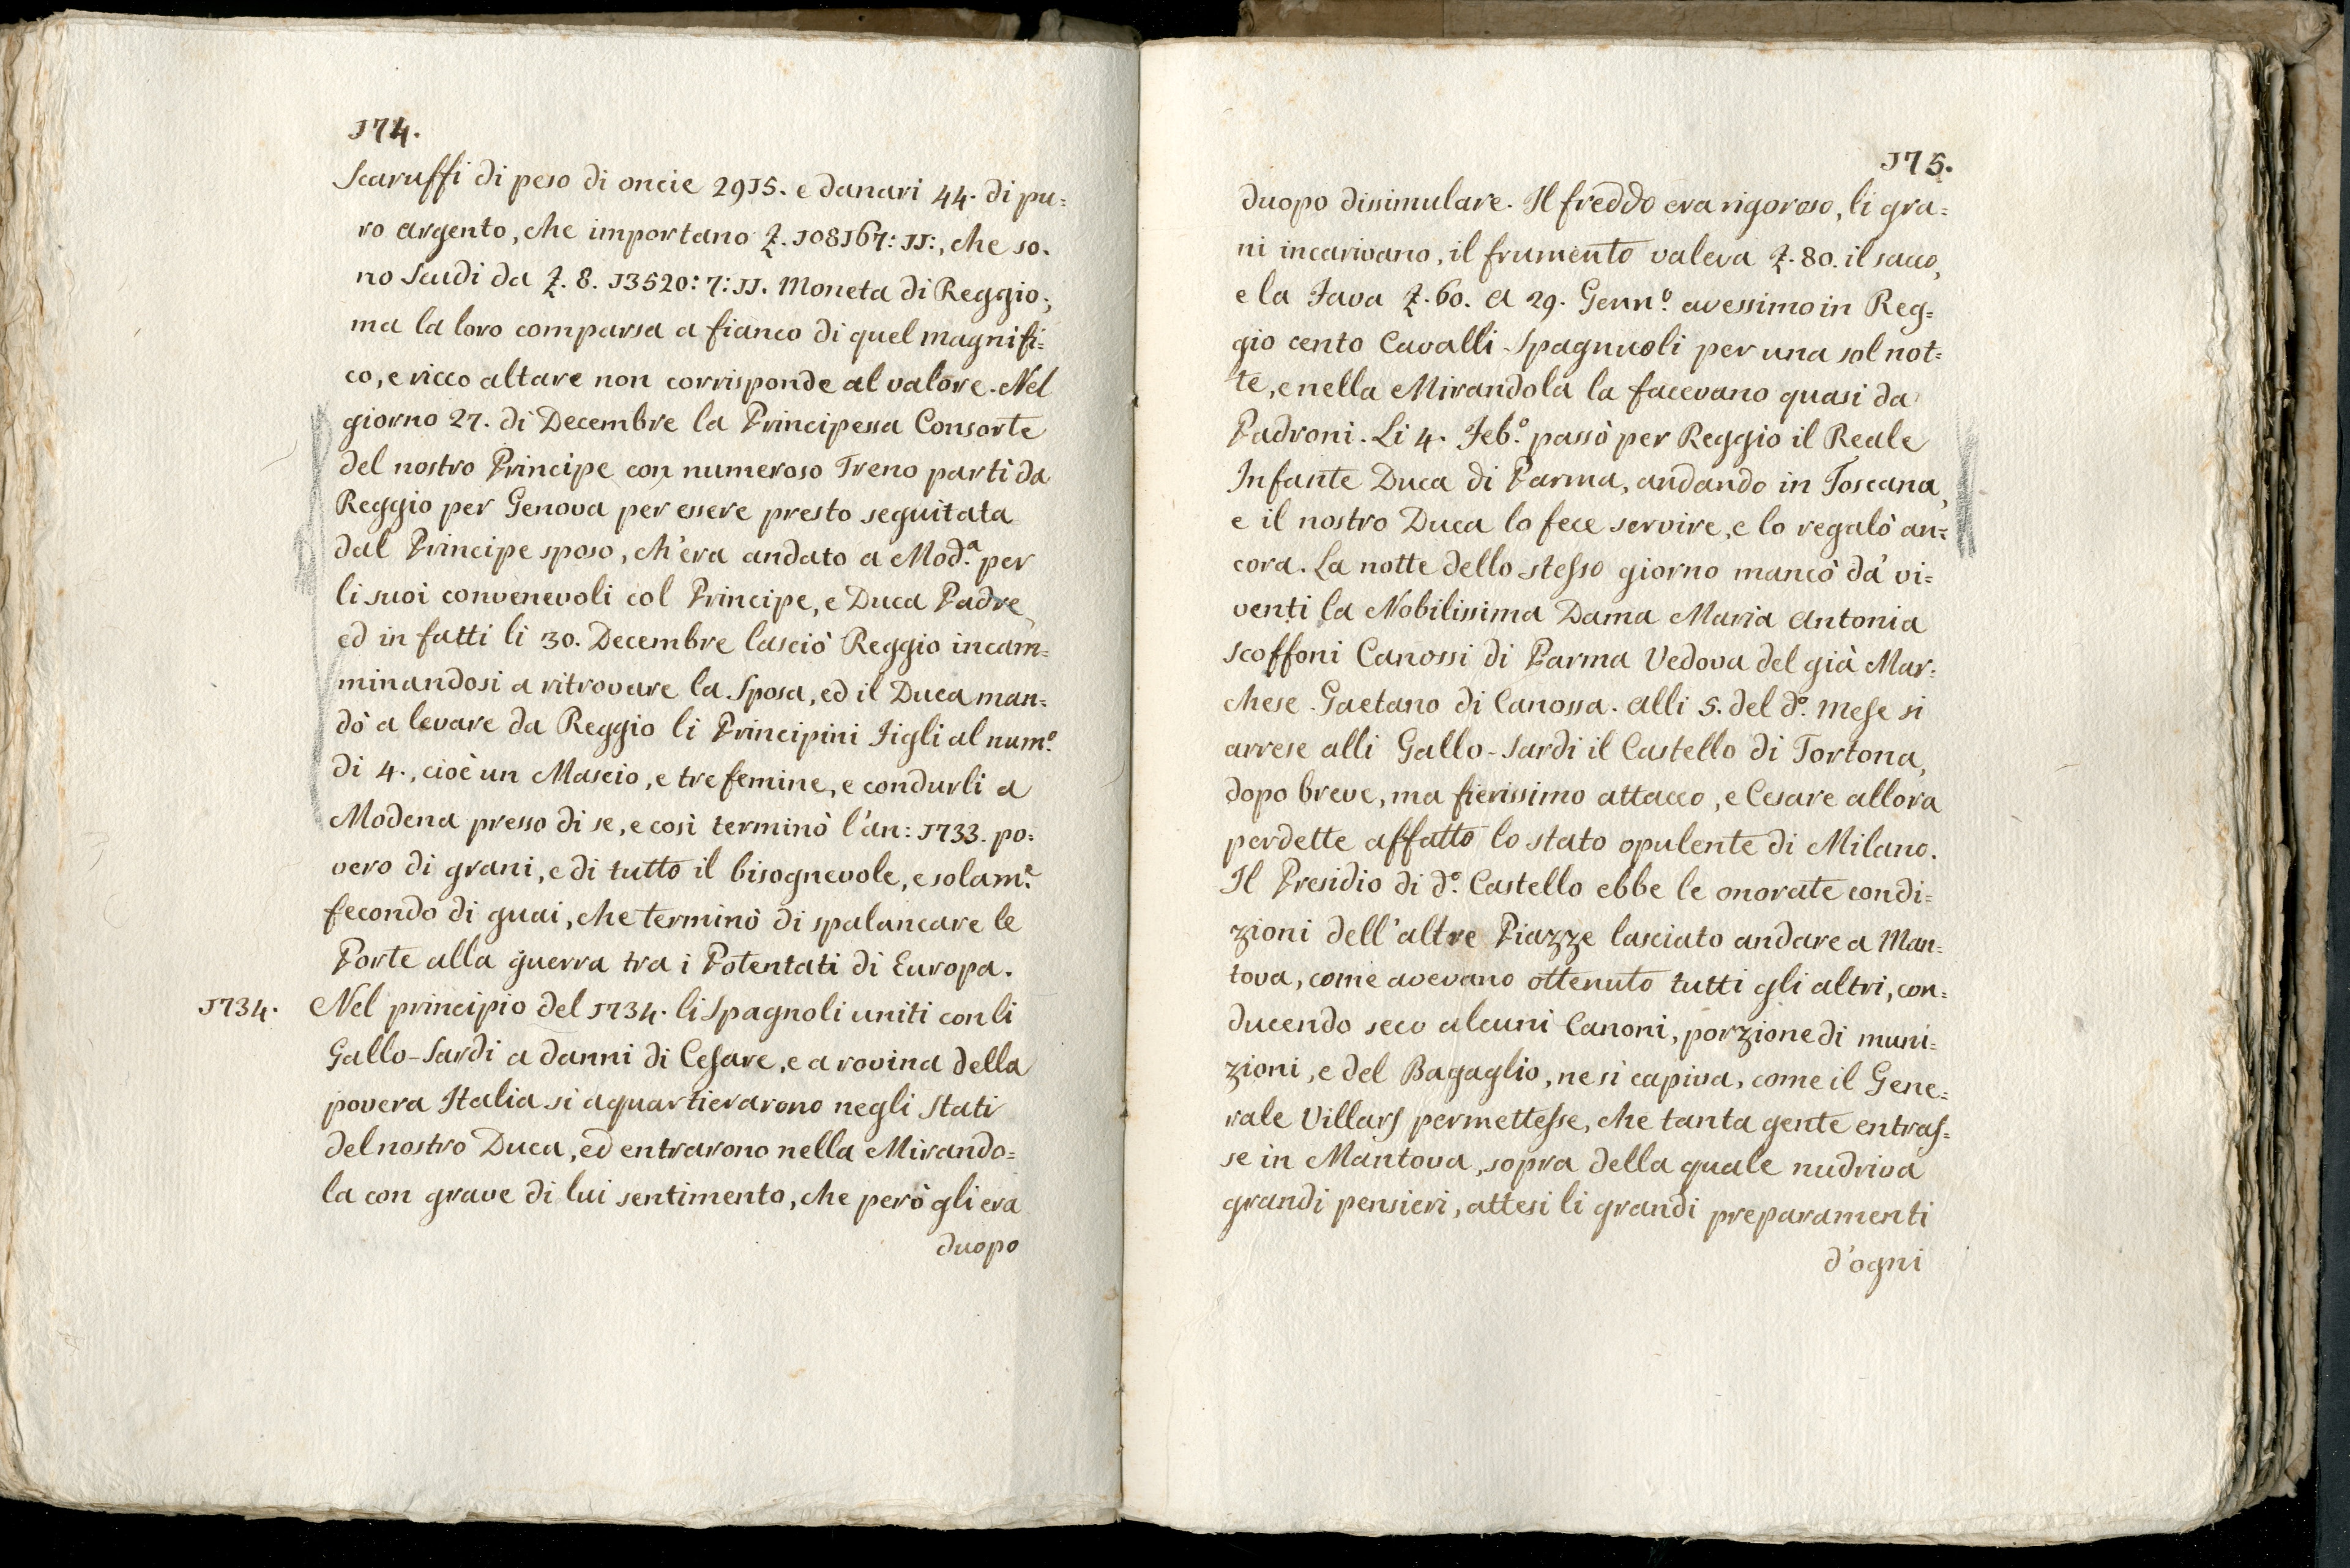 174.
Scaruffi di peso di oncie 2915. e danari 44. di pu=
ro argento, che importano £. 108167: 11:, che so.
no Scudi da £. 8. 13520: 7: 11. Moneta di Reggio;
ma la loro comparsa a fianco di quel magnifi=
co, e ricco altare non corrisponde al valore. Nel
giorno 27. di Decembre la Principessa Consorte
del nostro Principe con numeroso Treno partì da
Reggio per Genova per essere presto seguitata
dal Principe sposo, ch'era andato a Mod.ª per
li suoi convenevoli col Principe, e Duca Padre,
ed in fatti li 30. Decembre lasciò Reggio incam=
minandosi a ritrovare la Sposa, ed il Duca man=
dò a levare da Reggio li Principini Figli al num.º
di 4., cioè un Mascio, e tre femine, e condurli a
Modena presso di se, e così terminò l'an: 1733. po=
vero di grani, e di tutto il bisognevole, e solam.e
fecondo di guai, che terminò di spalancare le
Porte alla guerra tra i Potentati di Europa.
1734. Nel principio del 1734. li Spagnoli uniti con li
Gallo-Sardi a danni di Cesare, e a rovina della
povera Italia si aquartierarono negli Stati
del nostro Duca, ed entrarono nella Mirando=
la con grave di lui sentimento, che però gli era
duopo
175.
duopo dissimulare. Il freddo era rigoroso, li gra=
ni incarivano, il frumento valeva £. 80. il sacco,
e la Fava £. 60. A 29. Genn.º avessimo in Reg=
gio cento Cavalli Spagnuoli per una sol not=
te, e nella Mirandola la facevano quasi da
Padroni. Li 4. Feb.º passò per Reggio il Reale
Infante Duca di Parma, andando in Toscana,
e il nostro Duca lo fece servire, e lo regalò an=
cora. La notte dello stesso giorno mancò da' vi=
venti la Nobilissima Dama Maria Antonia
Scoffoni Canossi di Parma Vedova del già Mar=
chese Gaetano di Canossa. Alli 5. del d.º Mese si
arrese alli Gallo-Sardi il Castello di Tortona,
dopo breve, ma fierissimo attacco, e Cesare allora
perdette affatto lo stato opulente di Milano.
Il Presidio di d.º Castello ebbe le onorate condi=
zioni dell'altre Piazze lasciato andare a Man=
tova, come avevano ottenuto tutti gli altri, con=
ducendo seco alcuni Canoni, porzione di muni=
zioni, e del Bagaglio, ne si capiva, come il Gene=
rale Villars permettesse, che tanta gente entras=
se in Mantova, sopra della quale nudriva
grandi pensieri, attesi li grandi preparamenti
d'ogni